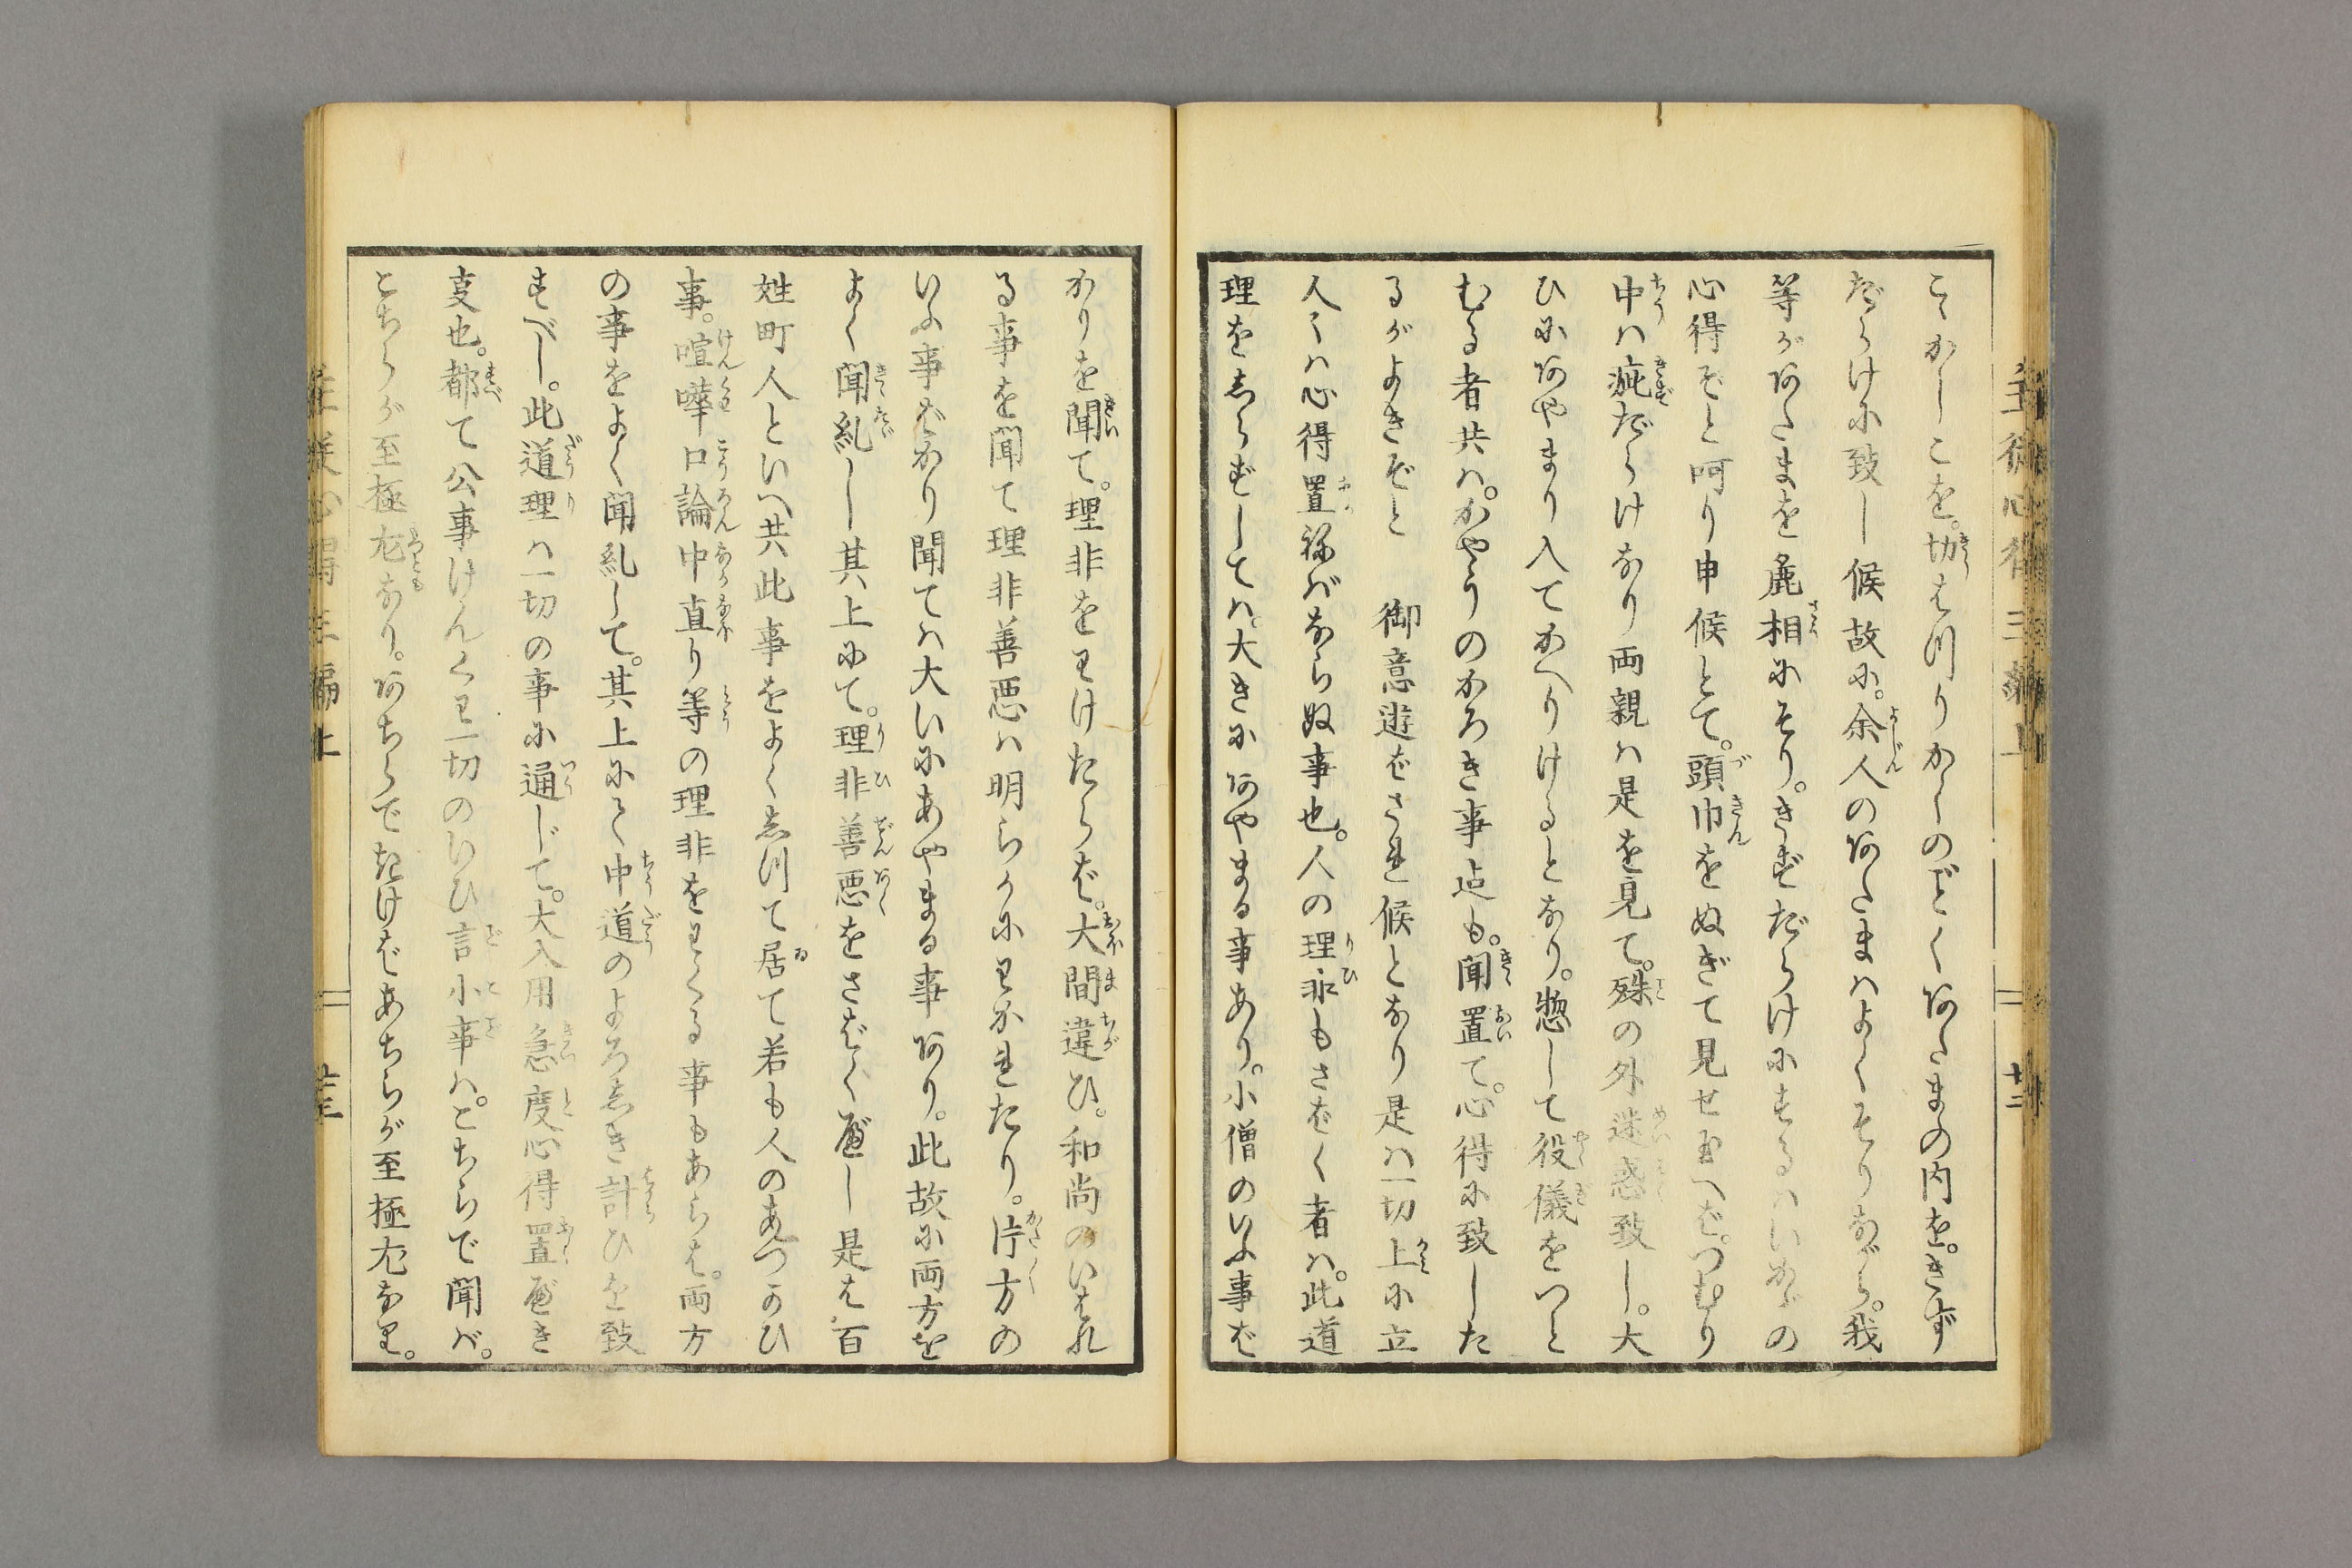 こゝかしこを。切はつりかくのごとくあたまの内を。きず
だらけに致し候故に。余人のあたまはよくそりながら。我
等があたまを麁相にそり。きずだらけにするはいかゞの
心得ぞと呵り申候とて。頭巾をぬぎて見せ給へば。つむり
中は疵だらけなり両親は是を見て。殊の外迷惑致し。大
ひにあやまり入てかへりけるとなり。惣して役儀をつと
むる者共は。かやうのかろき事迄も。聞置て。心得に致した
るがよきぞと　御意遊ばされ候となり是は一切上に立
人々は心得置ねばならぬ事也。人の理非もさばく者は。此道
理をしらずしては。大きにあやまる事あり。小僧のいふ事ば
かりを聞て。理非をわけたらば。大間違ひ。和尚のいはれ
る事を聞て理非善悪は明らかにわかれたり。片方の
いふ事ばかり聞ては大いにあやまる事あり。此故に両方を
よく聞糺し其上にて。理非善悪をさばくべし是は百
姓町人といへ共此事をよくしつて居て若も人のあつかひ
事。喧嘩口論中直り等の理非をわくる事もあらば。両方
の事をよく聞糺して。其上にて中道のよろしき計ひを致
すべし。此道理は一切の事に通じて。大入用急度心得置べき
支也。都て公事けんくわ一切のいひ言小事は。こちらで聞ば。
こちらが至極尤なり。あちらでたけばあちらが至極尤なり。
主従心得三編上
廿二
主従心得三編上
廿三